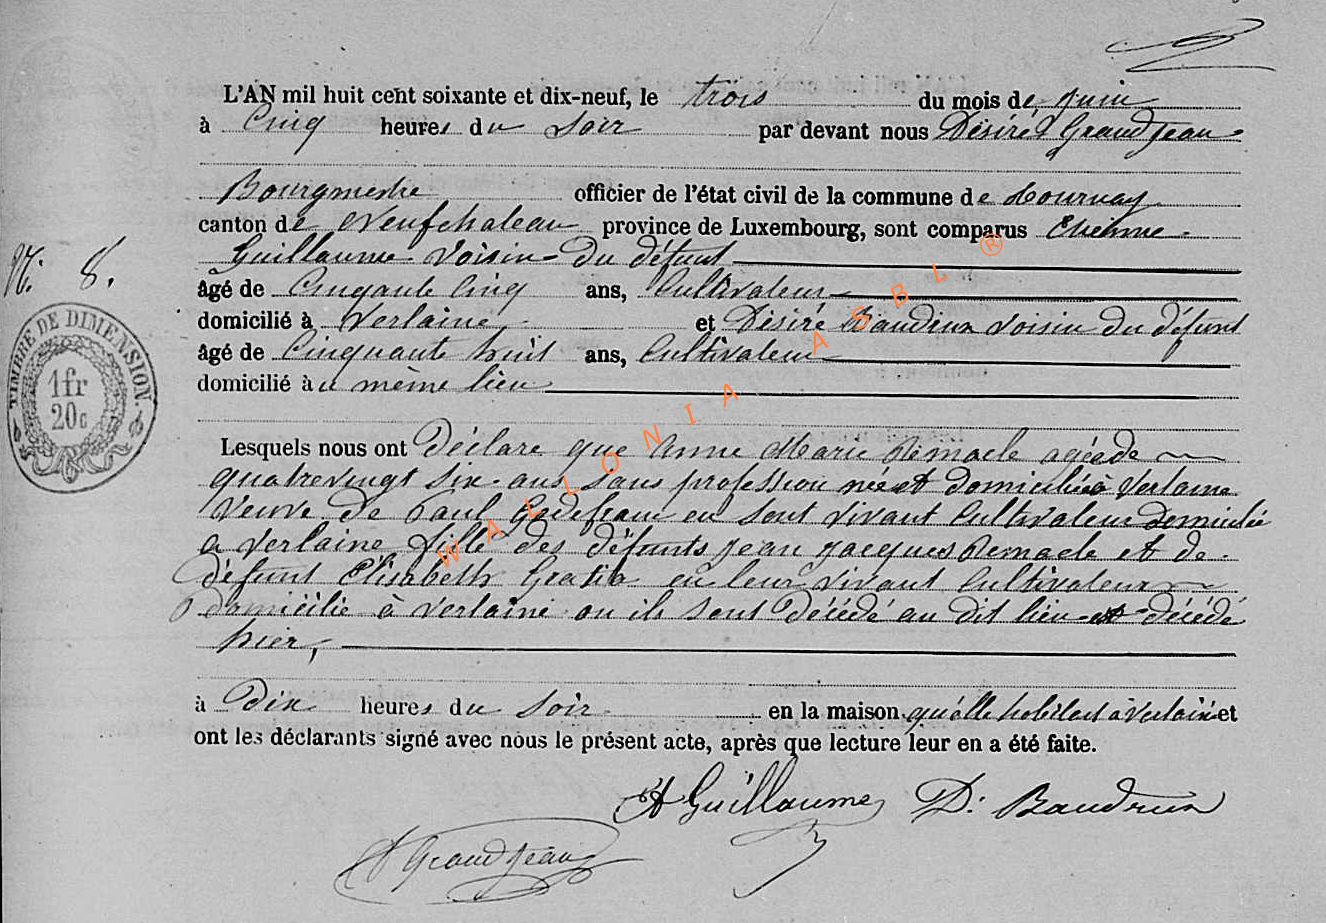 L'AN mil huit cent soixante et dix-neuf, le trois du mois de juin
à Cinq heures du soir par devant nous Désiré Grandjean
Bourgmestre officier de l'état civil de la commune de Tournay
canton de Neufchateau province de Luxembourg, sont comparus Etienne
N: 8.
Guillaume Voisin du défunt
âgé de Cinqante Cinq ans, Cultivateur
domicilié à Verlaine et Désiré Baudrux Voisin du défunt
âgé de Cinquante huit ans, Cultivateur
domicilié au même lieu
TIMBRE DE DIMENSION
1 fr
20c
Lesquels nous ont Déclare que Anne Marie Remacle agée de
quatrevingt six ans, sans profession née et domiciliée à Verlaine
Veuve de Paul Godefram en sont vivant Cultivateur domicilié
a Verlaine, fille des défunts jean jacques Remacle et de
défunt Elisabeth Gratia en leur vivant Cultivateur
domicilié à Verlaine ou ils sont Décédé au dit lieu et décédé
hier,
à Dix heures du Soir en la maison qu'elle habitait à Verlaine et
ont les déclarants signé avec nous le présent acte, après que lecture leur en a été faite.
Guillaume D: Baudrux
Grandjean
WALLONIA ASBL ®